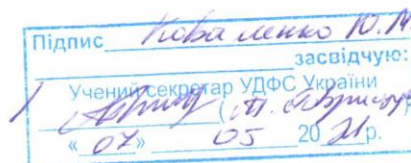 Підпис Коваленко Ю.М.
засвідчую:
Учений секретар УДФС України
« 07 » 05 20 21р.